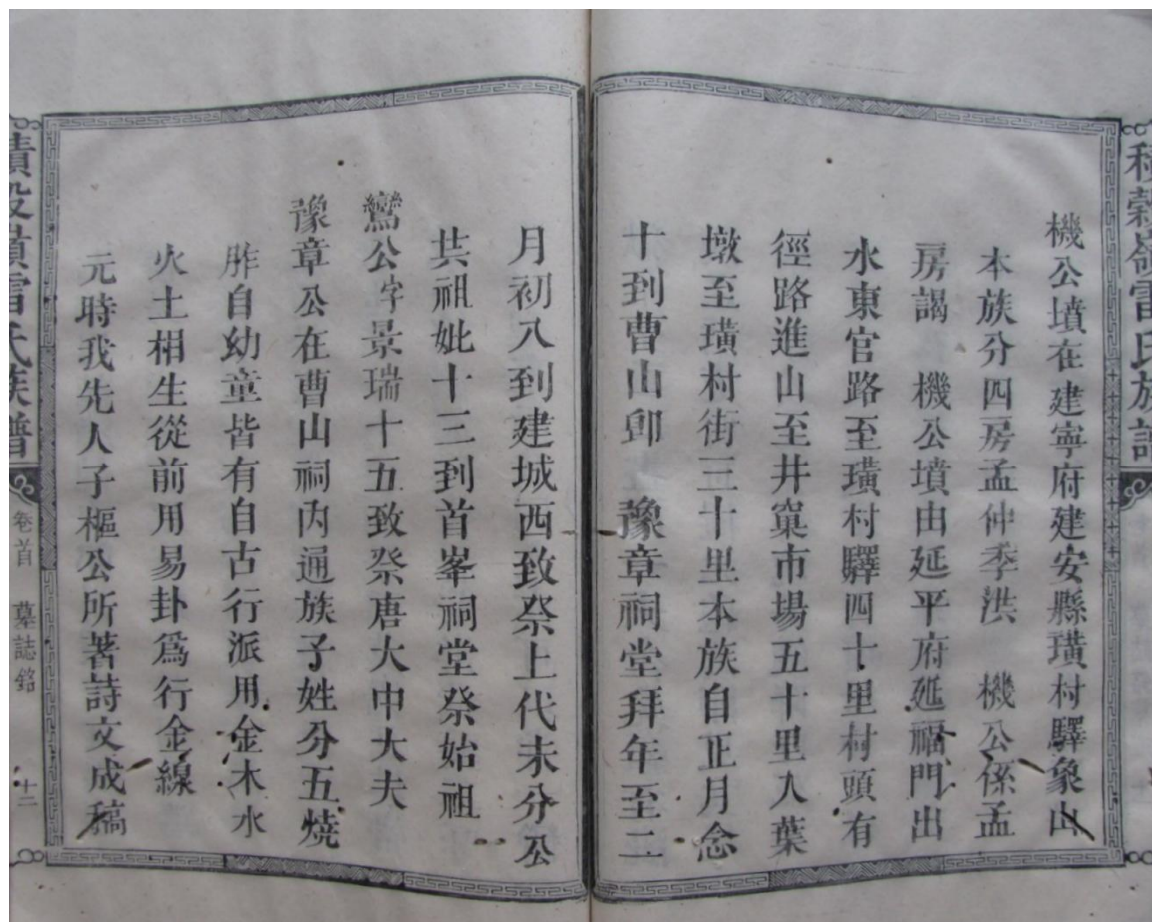 積穀嶺雷氏族譜
機公墳在建寧府建安縣璜村驛象山
本族分四房孟仲季洪 機公係孟
房謁 機公墳由延平府延福門出
水東官路至璜村驛四十里村頭有
徑路進山至井窠市場五十里入葉
墩至璜村街三十里本族自正月念
十到曹山卽 豫章祠堂拜年至二
月初八到建城西致祭上代未分公
共祖妣十三到首峯祠堂祭始祖
鸞公字景瑞十五致祭唐大中大夫
豫章公在曹山祠內通族子姓分五燒
胙自幼童皆有自古行派用金木水
火土相生從前用易卦爲行金線
元時我先人子樞公所著詩文成稿
積穀嶺雷氏族譜
卷首 墓誌銘 十二